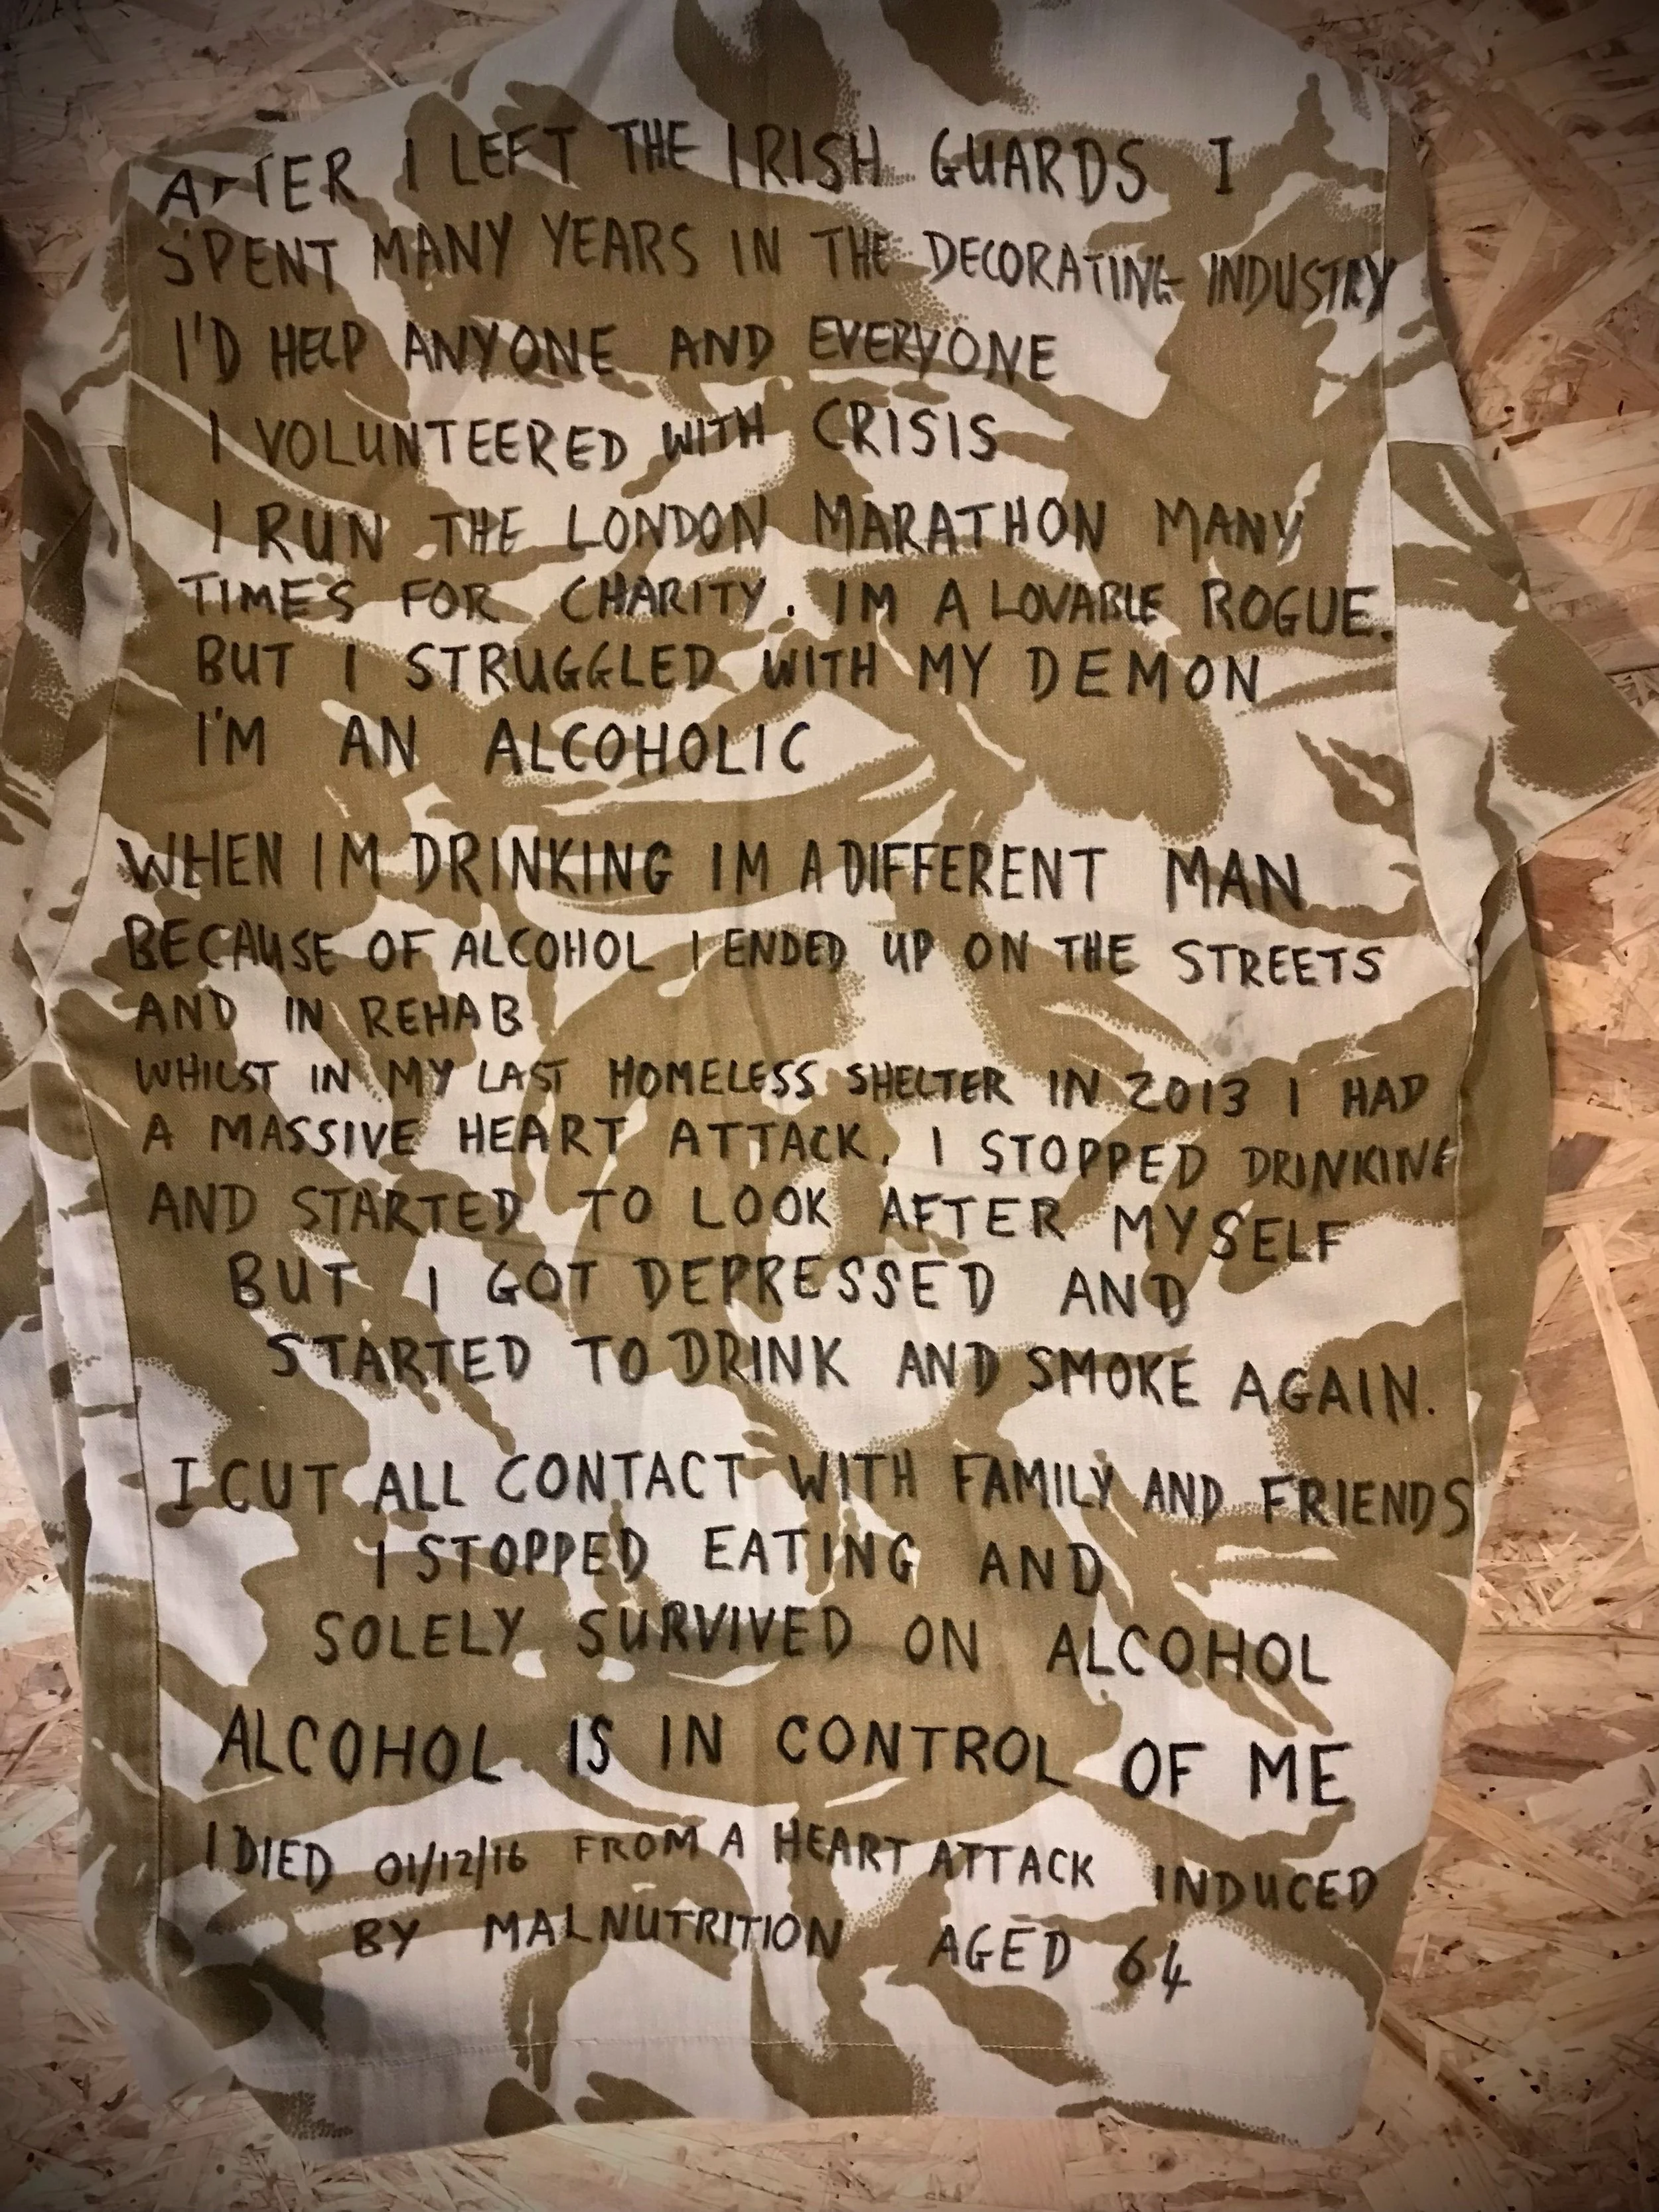 AFTER I LEFT THE IRISH GUARDS I
SPENT MANY YEARS IN THE DECORATING INDUSTRY
I'D HELP ANYONE AND EVERYONE
I VOLUNTEERED WITH CRISIS
I RUN THE LONDON MARATHON MANY
TIMES FOR CHARITY. IM A LOVABLE ROGUE.
BUT I STRUGGLED WITH MY DEMON
I'M AN ALCOHOLIC
WHEN IM DRINKING IM A DIFFERENT MAN
BECAUSE OF ALCOHOL I ENDED UP ON THE STREETS
AND IN REHAB
WHILST IN MY LAST HOMELESS SHELTER IN 2013 I HAD
A MASSIVE HEART ATTACK. I STOPPED DRINKING
AND STARTED TO LOOK AFTER MYSELF
BUT I GOT DEPRESSED AND
STARTED TO DRINK AND SMOKE AGAIN.
I CUT ALL CONTACT WITH FAMILY AND FRIENDS
I STOPPED EATING AND
SOLELY SURVIVED ON ALCOHOL
ALCOHOL IS IN CONTROL OF ME
I DIED 01/12/16 FROM A HEART ATTACK INDUCED
BY MALNUTRITION AGED 64